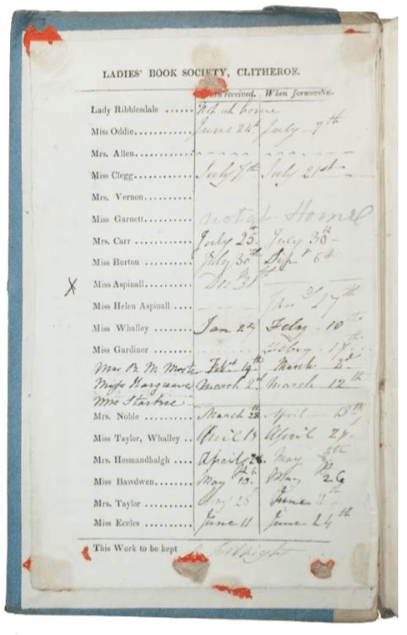 LADIES' BOOK SOCIETY, CLITHEROE.
When received. When forwarded.
Lady Ribblesdale ...... Not at home
Miss Oddie........... June 24th July 7th
Mrs. Allen...........
Miss Clegg........... July 7th July 21st
Mrs. Vernon..........
Miss Garnett......... not at Home
Mrs. Carr ........... July 23 July 30th
Miss Burton ......... July 30th Sepr 6th
X Miss Aspinall ....... Dec 31st
Miss Helen Aspinall ... Jan 27th
Miss Whalley ........ Jan 27 Feby 10th
Miss Gardiner ....... Feby 18th
Mrs March 2nd
Miss Hargreaves March 2nd March 12th
Mrs Starkie
Mrs. Noble .......... March April
Miss Taylor, Whalley .. April 13 April 24
Mrs. Hesmondhalgh ... April May
Miss Bawdwen........ May 10 May 26
Mrs. Taylor ......... May June 11th
Miss Eccles ......... June 11 June 24th
This Work to be kept